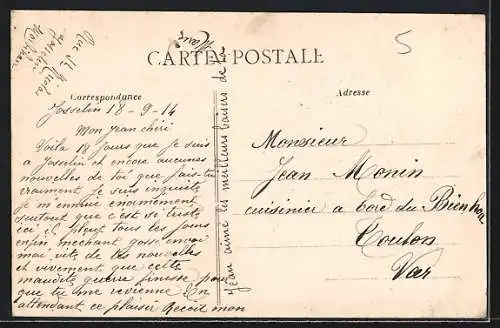 Rue St Nicolas
Josselin
Morbihan
5
CARTE POSTALE
Correspondance
Adresse
Josselin 18-9-14
Mon Jean chéri
Voila 18 jours que je suis
a Josselin et encore aucunes
nouvelles de toi que fais-tu
vraiment je suis inquiète
je m'ennuie enormement
surtout que c'est si triste
ici il pleut tous les jours
enfin mechant goss envoi
moi vite de tes nouvelles
et vivement que cette
maudite guerre finisse pour
que tu me revienne En
attendant ce plaisir Recoit mon
Jean aimé les meilleurs baisers de ta
Monsieur
Jean Monin
cuisinier a bord du Bien hoa
Toulon
Var